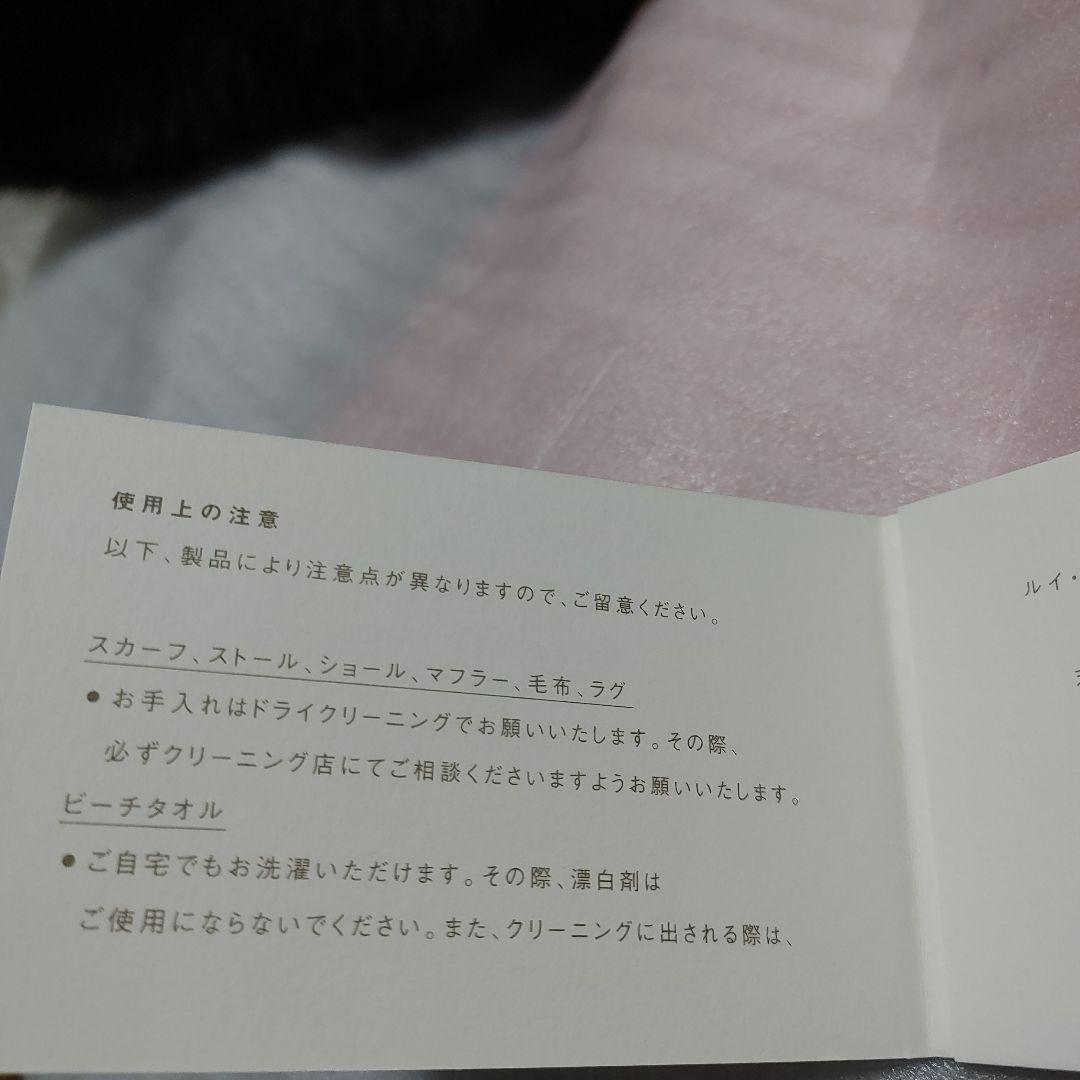 使用上の注意
以下、製品により注意点が異なりますので、ご留意ください。
スカーフ、ストール、ショール、マフラー、毛布、ラグ
● お手入れはドライクリーニングでお願いいたします。その際、
必ずクリーニング店にてご相談くださいますようお願いいたします。
ビーチタオル
● ご自宅でもお洗濯いただけます。その際、漂白剤は
ご使用にならないでください。また、クリーニングに出される際は、
ルイ・